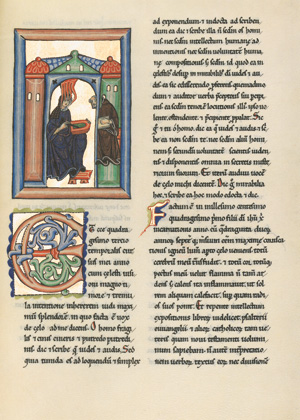 Et ecce qua
dragesimo
tertio
temporalis cur
sus mei anno
cum celesti uisi
oni magno ti
more & tremu
la intentione inhererem. uidi maxi
mū splendorē. in quo facta ē uox
de celo ad me dicens. O homo fragi
lis & cinis cineris & putredo putredi
nis. dic & scribe q̄ uides & audis. Sed
quia timida es ad loquendū & simplex
ad exponendum & indocta ad scriben
dum ea dic & scribe illa ñ sedm os homi
nis nec sedm intellectum humanę ad
inuentionis nec sedm uoluntatē humanę
compositionis sȝ sedm id quod ea in
celestib; desup in mirabilib; dī uides & au
dis. ea sic edisserendo pferens quemadmo
dum & auditor uerba pceptoris sui pcipi
ens. ea sedm tenorē locutionis illi; ipso uo
lente. ostendente. & pcipiente ppalat. Sic
g & tu ó homo. dic ea q̄ uides & audis. & scri
be ea non sedm te. nec sedm aliū homi
nem sȝ secundū uoluntatē scientis uiden
tis & disponentis omnia in secretis miste
riorum suorum. Et iterū audiui uocē
de celo michi dicentē. Dic g̃ mirabilia
hec. & scribe ea hoc modo edocta & dic.
Factum ē in millesimo centesimo
quadragesimo primo filii dī ihū x̄
incarnationis anno. cū quadraginta duoȝ
annoȝ septēq; m̄siū eēm maximę corusca
tionis igneū lum̄ aptō celo ueniens totū
cerebrū meū transfudit. & totū cor. totūq;
pectus meū uelut flamma ñ tam̄ ar
dens sȝ calens ita inflammauit. ut sol
rem aliquam calefacit. sup quam radi
os suos ponit. Et repente intellectum
expositionis librorū uidelicet psalterii
ewangelii & alioȝ catholicoȝ tam ue
teris quam noui testamenti uoluminum
sapiebam. ñ autē interpretatio
nem uerboȝ textus eoȝ nec diuisionē